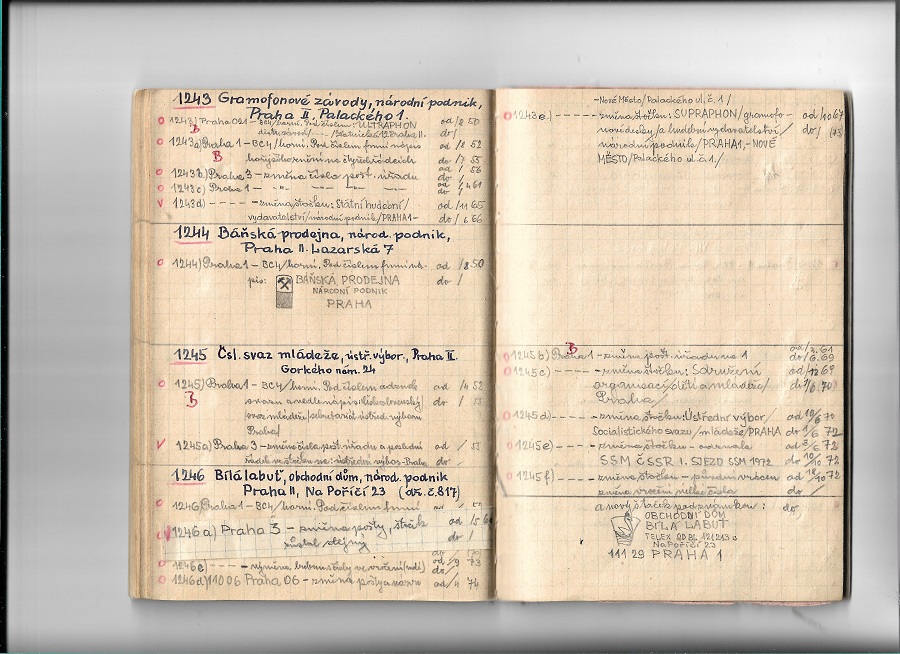 1243 Gramofonové závody, národní podnik,
Praha II, Palackého 1.
1243) Praha 021 - BC4/horní. Pod číslem: ULTRAPHON
B
1243a) Praha 1 - BC4/horní. Pod číslem firmní nápis od /8 52
B do /7 55
1243b) Praha 3 - změna čísla pošt. úřadu od / 56
do /
1243c) Praha 1 - " - " - " - od /4 61
do /
1243d) - - - - - změna štočku: Státní hudební/ od /11 65
vydavatelství/národní podnik/PRAHA 1- do /6 66
1244 Báňská prodejna, národ. podnik,
Praha II. Lazarská 7
1244) Praha 1 - BC4/horní. Pod číslem firmní ná- od /8 50
pis: BÁŇSKÁ PRODEJNA do /
NÁRODNÍ PODNIK
PRAHA
1245 Čsl. svaz mládeže, ústř. výbor., Praha II.
Gorkého nám. 24
1245) Praha 1 - BC4/horní. Pod číslem od /4 52
B do / 55
svaz mládeže/
Praha/
1245a) Praha 3 - změna čísla pošt. úřadu a poslední od / 55
řádek ve štočku na: ústřední výbor-Praha do /
1246 Bílá labuť, obchodní dům, národ. podnik
Praha II, Na Poříčí 23 (ots. č. 817)
1246 Praha 1 - BC4/horní. Pod číslem firmní
1246a) Praha 3 - změna pošty, štoček od
zůstal stejný do 1
1246c) - - - - výměna od /9 73
do /
1246d) 110 06 Praha 06 - změna pošty a názvu od /4 74
-Nové Město/Palackého ul. č. 1/
1243e) - - - - změna štočku: SUPRAPHON/gramofo- od /10 67
nové desky a hudební vydavatelství/ do /
národní podnik/PRAHA 1,-NOVÉ
MĚSTO/Palackého ul. č. 1./
B
1245b) Praha 1 - změna pošt. úřadu na 1 do /6.69
1245c) - - - - - změna štočku: Sdružení od /12 69
organisací dětí a mládeže/ do 1/6.70
Praha/
1245d) - - - - - změna štočku: Ústřední výbor/ od 10/6 70
Socialistického svazu/mládeže/PRAHA do 1/6 72
1245e) - - - - změna štočku - od 3/6 72
SSM ČSSR I. SJEZD SSM 1972 do 10/10 72
1245f) - - - - - změna štočku - původní vrácen od 18/10 72
změna vrácení velké číslo do /
a nový štoček pod známkou: do
OBCHODNÍ DŮM
BÍLÁ LABUŤ
TELEX OD BL 121213 c
Na Poříčí 23
111 29 PRAHA 1